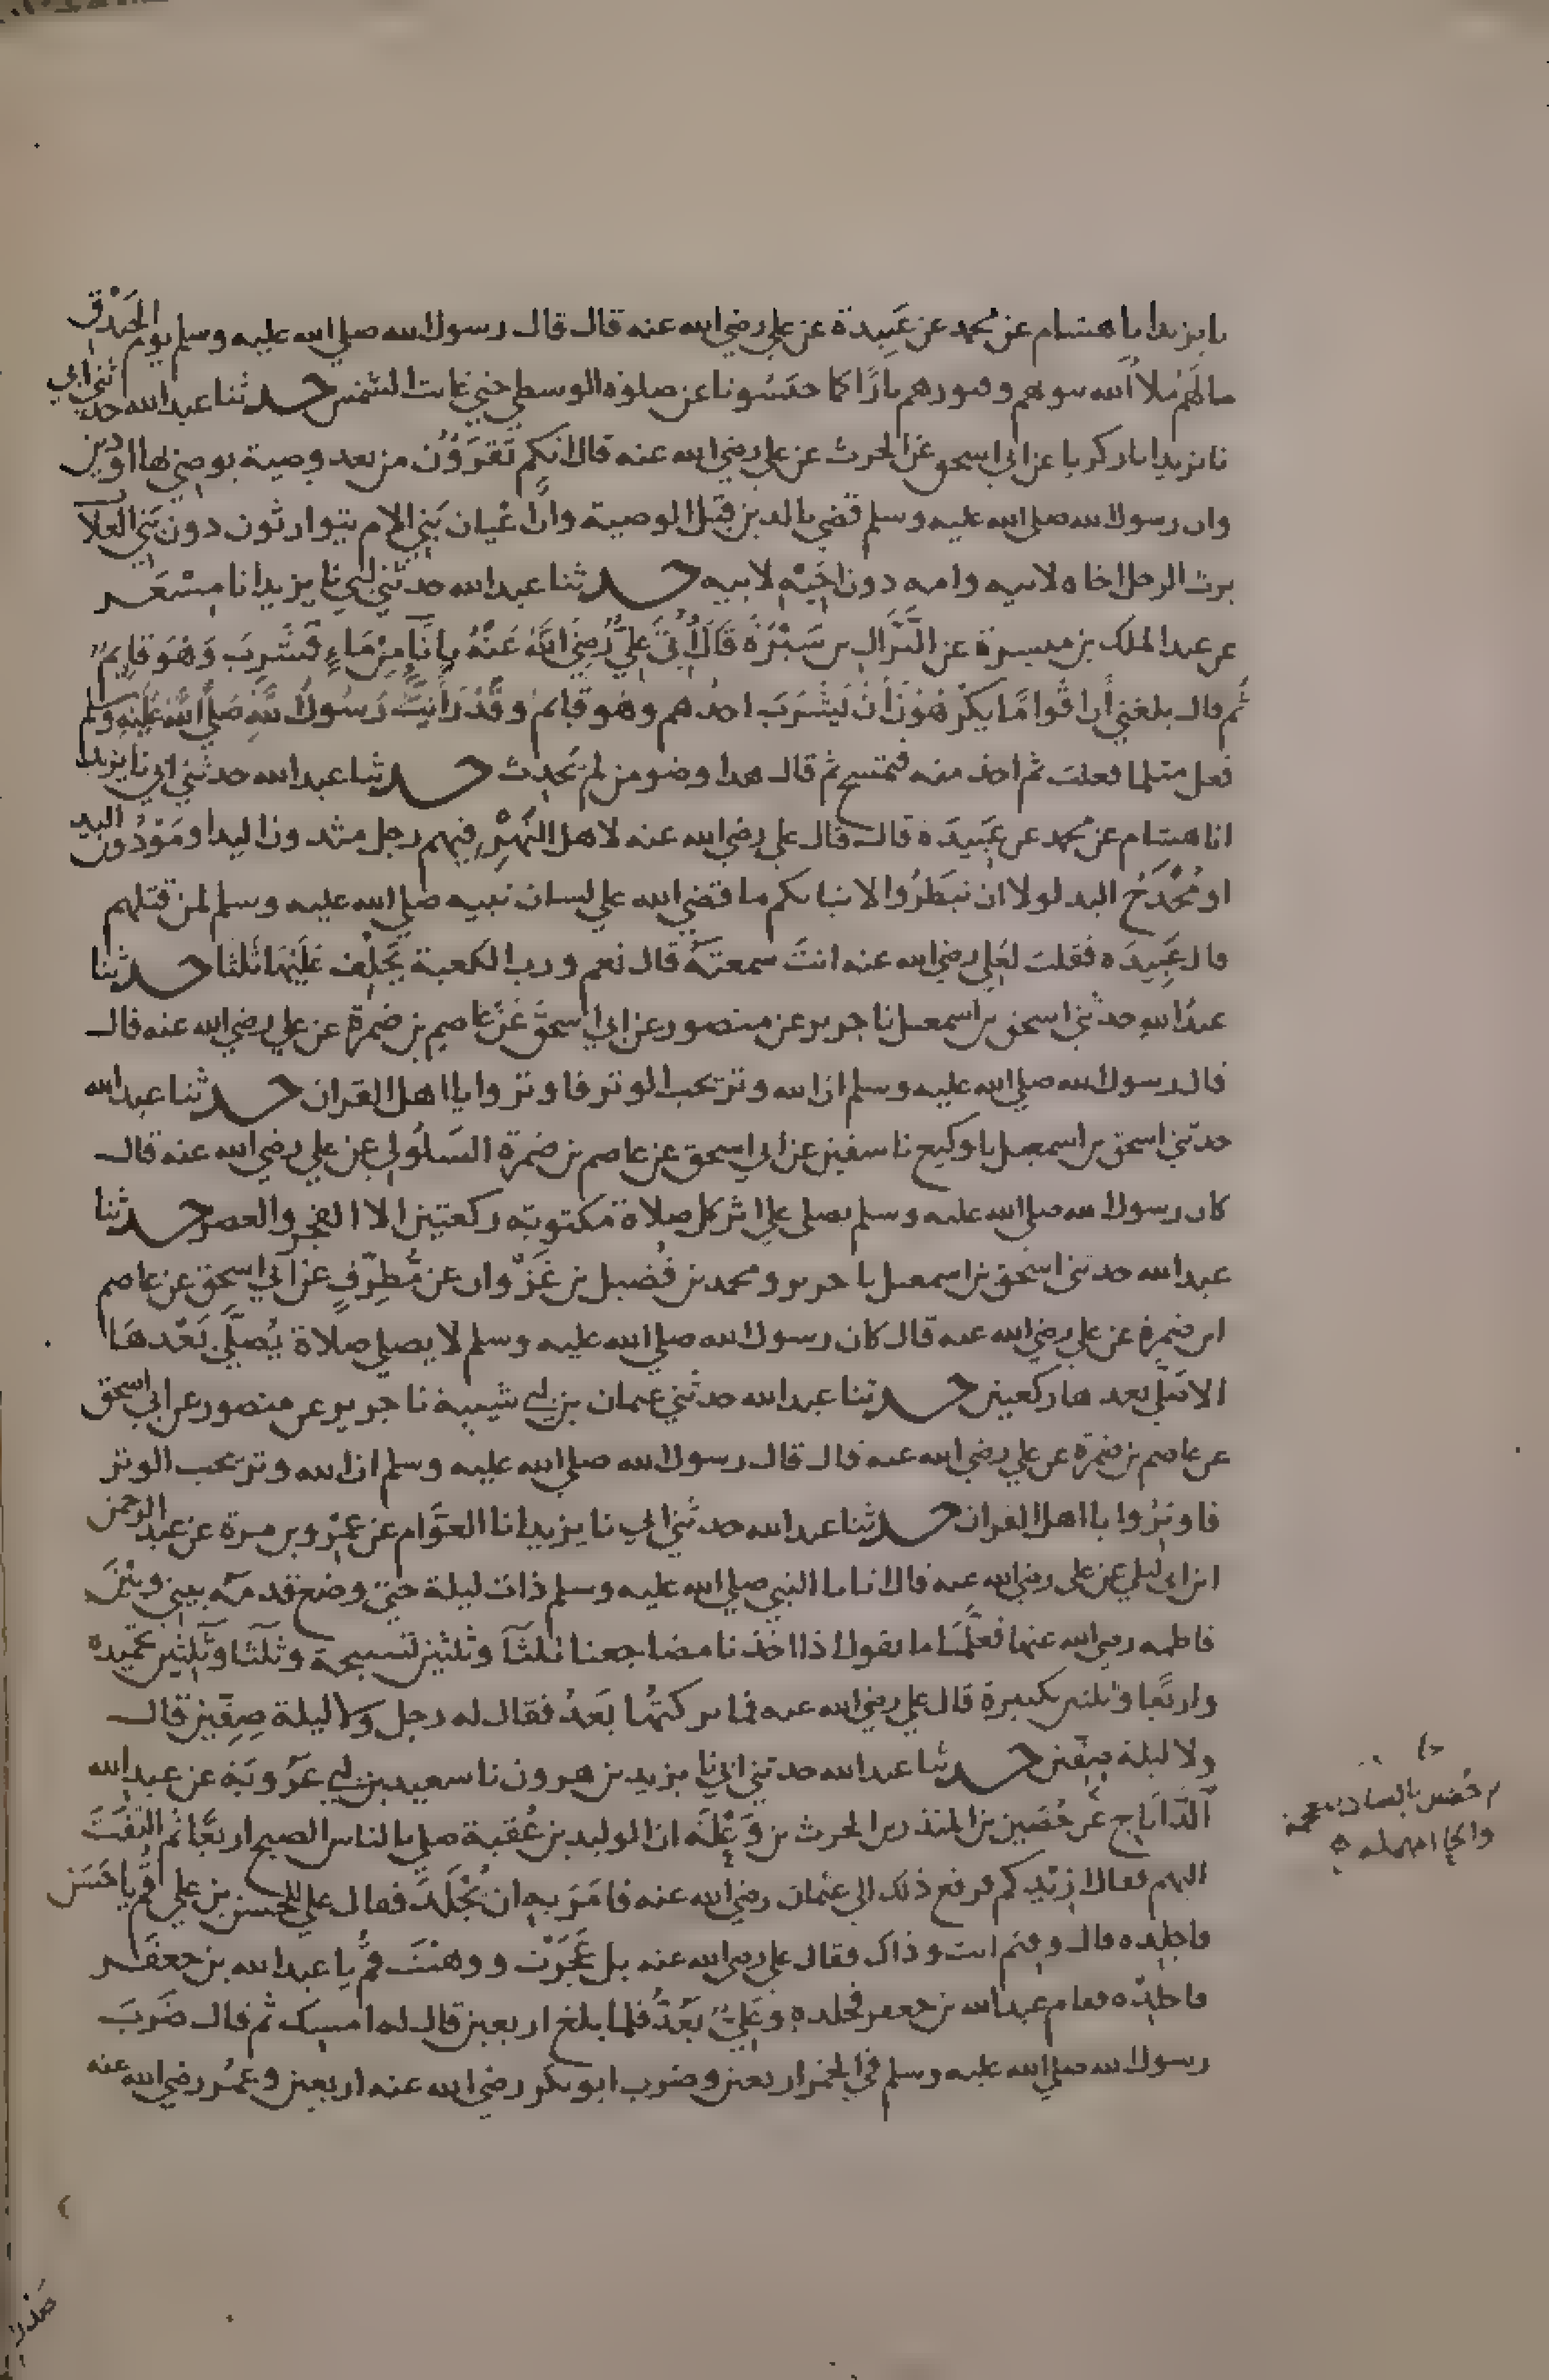 نا يزيد انا هشام عن محمد عن عَبِيدة عن علي رضي الله عنه قال قال رسول الله صلى الله عليه وسلم يوم الخَنْدق
مالَهُم مَلأ الله بيوتهم وقبورهم نارًا كما حَبَسُونا عن صلوة الوسطى حتى غابت الشمس حدثنا عبد الله حدثني ابي
نا يزيد انا زكريا عن ابي اسحق عن الحرث عن علي رضي الله عنه قال انكم تَقرَؤُن من بعد وصية يوصى بها او دين
وان رسول الله صلى الله عليه وسلم قضى بالدين قبل الوصية وان اعيان بَنِي الام يتوارثون دون بَنِي العلات
يرث الرجل اخاه لابيه وامه دون اخِيْهِ لابيه حدثنا عبد الله حدثني ابي نا يزيد انا مِسْعَر
عن عبد الملك بن ميسرة عن النَّزَّال بن سَبْرَةَ قَالَ أُتِيَ عَلِيٌّ رَضِيَ اللهُ عَنْهُ بِانَآءٍ مِنْ مَاءٍ فَشَرِبَ وَهُوَ قَايِمٌ
ثُم قال بلغني أن اقوامًا يكْرَهُوْنَ أَنْ يَشْرَبَ احدُهم وهُو قايم وَقَدْ رَأَيْتُ رَسُولَ اللهِ صَلَّى اللهُ عَلَيْهِ وَسَلم
فعل مثل ما فعلت ثم اخذ منه فتمسح ثم قال هذا وضو من لم يُحدِث حدثنا عبد الله حدثني ابي نا يزيد
انا هشام عن محمد عن عَبِيدَه قال قال علي رضي الله عنه لاهل النَّهْرِ فيهم رجل مثدون اليد او مَوْدُون اليد
او مُخْدَجُ اليد لولا ان تبطَرُوا لانباتكم ما قضى الله على لسان نبيه صلى الله عليه وسلم لمن قتلهم
قال عَبِيدَه فقلت لعَلي رضي الله عنه انتَ سمعتَهُ قال نعم ورب الكعبة يَحلِف عَلَيْهَا ثلثا حدثنا
عبدُ اللهِ حدثني اسحق بن اسمعيل نا جرير عن منصور عن ابي اسحق عَنْ عاصم بن ضمرة عن علي رضي الله عنه قال
قال رسول الله صلى الله عليه وسلم ان الله وتر يحب الوتر فاوتروا يا اهل القران حدثنا عبد الله
حدثني اسحق بن اسمعيل نا وكيع نا سفين عن ابي اسحق عن عاصم بن ضمرة السَلُولي عن علي رضي الله عنه قال
كان رسول الله صلى الله عليه وسلم يصلي على اثر كل صلاة مكتوبة ركعتين الا الفجر والعصر حدثنا
عبد الله حدثني اسحق بن اسمعيل نا جرير ومحمد بن فُضيل بن غَزْوان عن مُطرِّفٍ عن ابي اسحق عن عاصم
ابن ضمرة عن علي رضي الله عنه قال كان رسول الله صلى الله عليه وسلم لا يصلي صلاة يُصلَّى بَعْدهَا
الا صَلَّى بعدها ركعتين حدثنا عبد الله حدثني عثمان بن ابي شيبة نا جرير عن منصور عن ابي اسحق
عن عاصم بن ضمرة عن علي رضي الله عنه قال قال رسول الله صلى الله عليه وسلم ان الله وتر يحب الوتر
فاوتِرُوا يا اهل القران حدثنا عبد الله حدثني ابي نا يزيد انا العوَّام عن عَمْرو بن مرة عن عبد الرحمن
ابن ابي ليلى عن علي رضي الله عنه قال اتانا النبي صلى الله عليه وسلم ذات ليلة حتى وضع قدمَهُ بيني وبَيْنَ
فاطمه رضي الله عنها فعلَّمَنا ما نقول اذا اخذنا مضاجعنا ثلثًا وثلثين تسبيحة وثلثًا وثلثين تحميده
واربعًا وثلثين تكبيرة قال علي رضي الله عنه فما تركتُها بَعدُ فقال له رجل ولا ليلة صِفّين قال
ولا ليلة صِفّين حدثنا عبد الله حدثني ابي نا يزيد بن هرون نا سعيد بن ابي عَرُوبَة عن عبد الله
الدَّانَاجِ عن حُضَين بن المنذر بن الحرث بن وَعْلَه ان الوليد بن عُقبة صلى بالناس الصبح اربعًا ثم التفَتَ
اليهم فقال ازيدكم فرفع ذلك الى عثمان رضي الله عنه فامَرَ به ان يُجْلَدَ فقال علي للحسن بن علي قُم يا حَسَن
فاجلِده قال وفيم انت وذاك فقال علي رضي الله عنه بل عَجَزْتَ ووهنْتَ قُم يا عبد الله بن جعفَر
فاجلِدْه فقام عبد الله بن جعفر فجلده وعَلِيٌّ يَعُدُّ فلما بلغ اربعين قال له امسِك ثم قال ضَرَبَ
رسول الله صلى الله عليه وسلم في الخمر اربعين وضرب ابو بكر رضي الله عنه اربعين وعُمَر رضي الله عنه
حُضين بالضاد معجمة
والحا مهمله